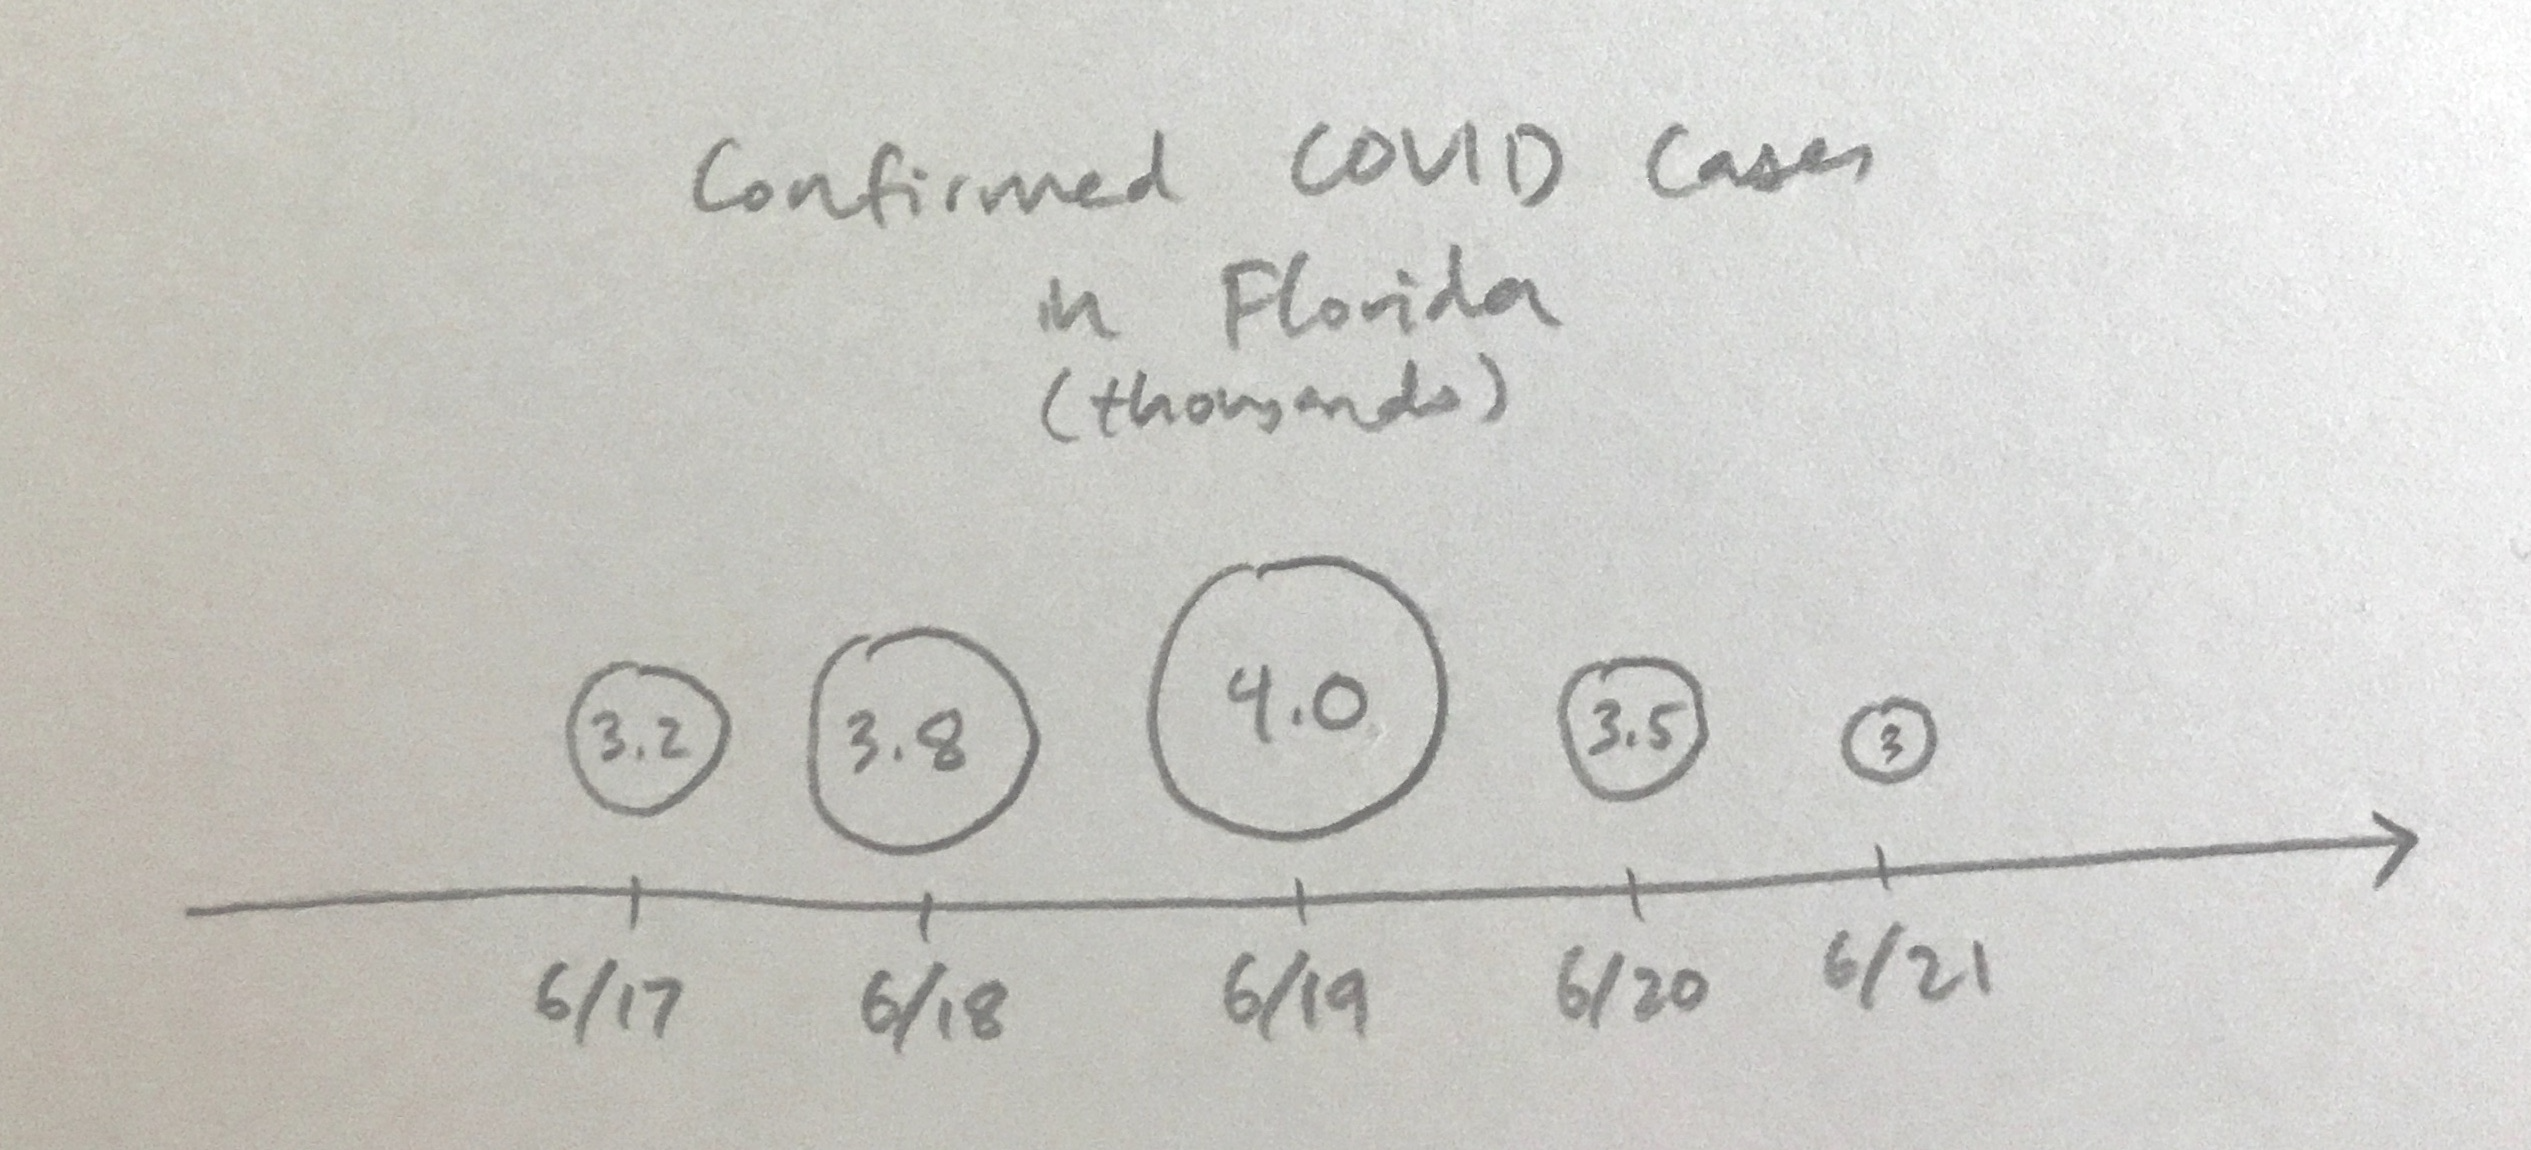 Confirmed COVID Cases
in Florida
(thousands)
3.2 3.8 4.0 3.5 3
6/17 6/18 6/19 6/20 6/21